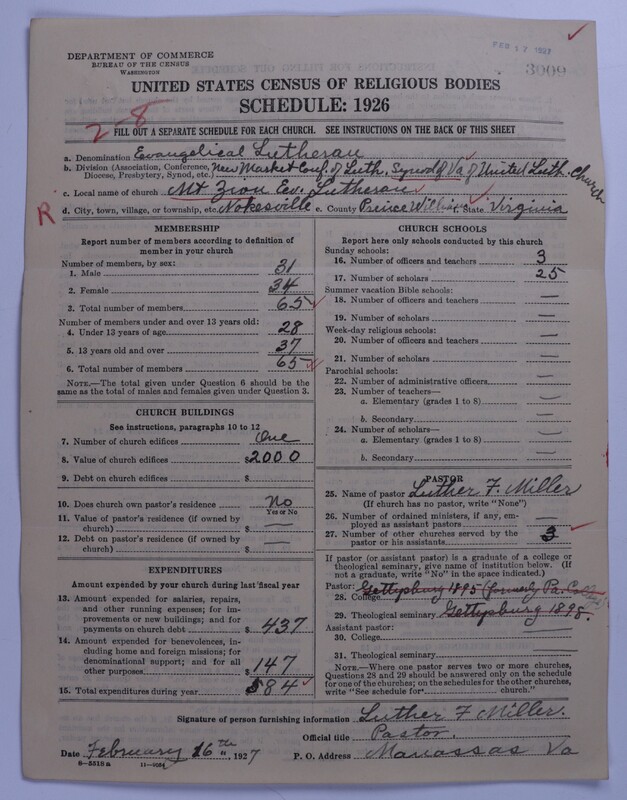 FEB 17 1927
3009
DEPARTMENT OF COMMERCE
BUREAU OF THE CENSUS
WASHINGTON
UNITED STATES CENSUS OF RELIGIOUS BODIES
SCHEDULE: 1926
2-8
FILL OUT A SEPARATE SCHEDULE FOR EACH CHURCH. SEE INSTRUCTIONS ON THE BACK OF THIS SHEET
a. Denomination Evangelical Lutheran
b. Division (Association, Conference, Diocese, Presbytery, Synod, etc.) New Market Conf. of Luth. Synod of Va of United Luth. Church
c. Local name of church Mt Zion Ev. Lutheran
R
d. City, town, village, or township, etc. Nokesville e. County Prince William f. State Virginia
MEMBERSHIP
Report number of members according to definition of
member in your church
Number of members, by sex:
1. Male 31
2. Female 34
3. Total number of members 65
Number of members under and over 13 years old:
4. Under 13 years of age 28
5. 13 years old and over 37
6. Total number of members 65
NOTE.—The total given under Question 6 should be
same as the total of males and females given under Question 3.
CHURCH BUILDINGS
See instructions, paragraphs 10 to 12
7. Number of church edifices One
8. Value of church edifices $2000
9. Debt on church edifices $
10. Does church own pastor's residence No
Yes or No
11. Value of pastor's residence (if owned by
church) $ —
12. Debt on pastor's residence (if owned by
church) $ —
EXPENDITURES
Amount expended by your church during last fiscal year
13. Amount expended for salaries, repairs,
and other running expenses; for im-
provements or new buildings; and for
payments on church debt $437
14. Amount expended for benevolences, in-
cluding home and foreign missions; for
denominational support; and for all
other purposes $147
15. Total expenditures during year $584
CHURCH SCHOOLS
Report here only schools conducted by this church
Sunday schools:
16. Number of officers and teachers 3
17. Number of scholars 25
Summer vacation Bible schools:
18. Number of officers and teachers —
19. Number of scholars —
Week-day religious schools:
20. Number of officers and teachers —
21. Number of scholars —
Parochial schools:
22. Number of administrative officers —
23. Number of teachers—
a. Elementary (grades 1 to 8) —
b. Secondary —
24. Number of scholars—
a. Elementary (grades 1 to 8) —
b. Secondary —
PASTOR
25. Name of pastor Luther F. Miller
(If church has no pastor, write "None")
26. Number of ordained ministers, if any, em-
ployed as assistant pastors —
27. Number of other churches served by the
pastor or his assistants 3
If pastor (or assistant pastor) is a graduate of a college or
theological seminary, give name of institution below. (If
not a graduate, write "No" in the space indicated.)
Pastor:
28. College Gettysburg 1895 (formerly Pa. College)
29. Theological seminary Gettysburg 1898.
Assistant pastor:
30. College
31. Theological seminary
NOTE.—Where one pastor serves two or more churches,
Questions 28 and 29 should be answered only on the schedule
for one of the churches; on the schedules for the other churches,
write "See schedule for church."
Signature of person furnishing information Luther F Miller.
Official title Pastor.
Date February 16th, 1927 P. O. Address Manassas Va
8-5518a 11-9054